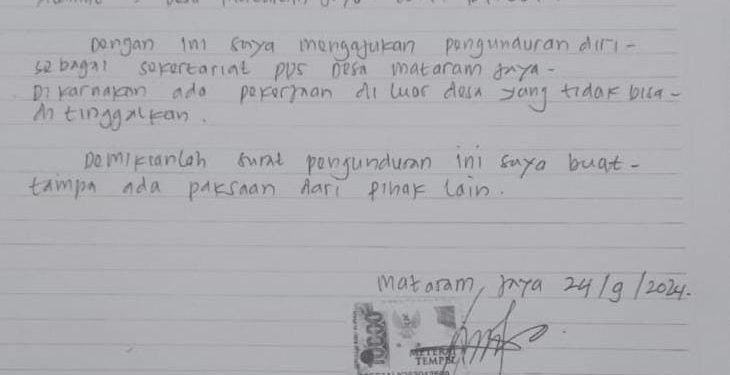 Dengan ini saya mengajukan pengunduran diri -
sebagai sekertariat PPS Desa Mataram Jaya -
Di karnakan ada pekerjaan di luar desa yang tidak bisa -
di tinggalkan.
Demikianlah surat pengunduran ini saya buat -
tampa ada paksaan dari pihak lain.
Mataram, Jaya 24/9/2024.
10000
METERAI
TEMPEL